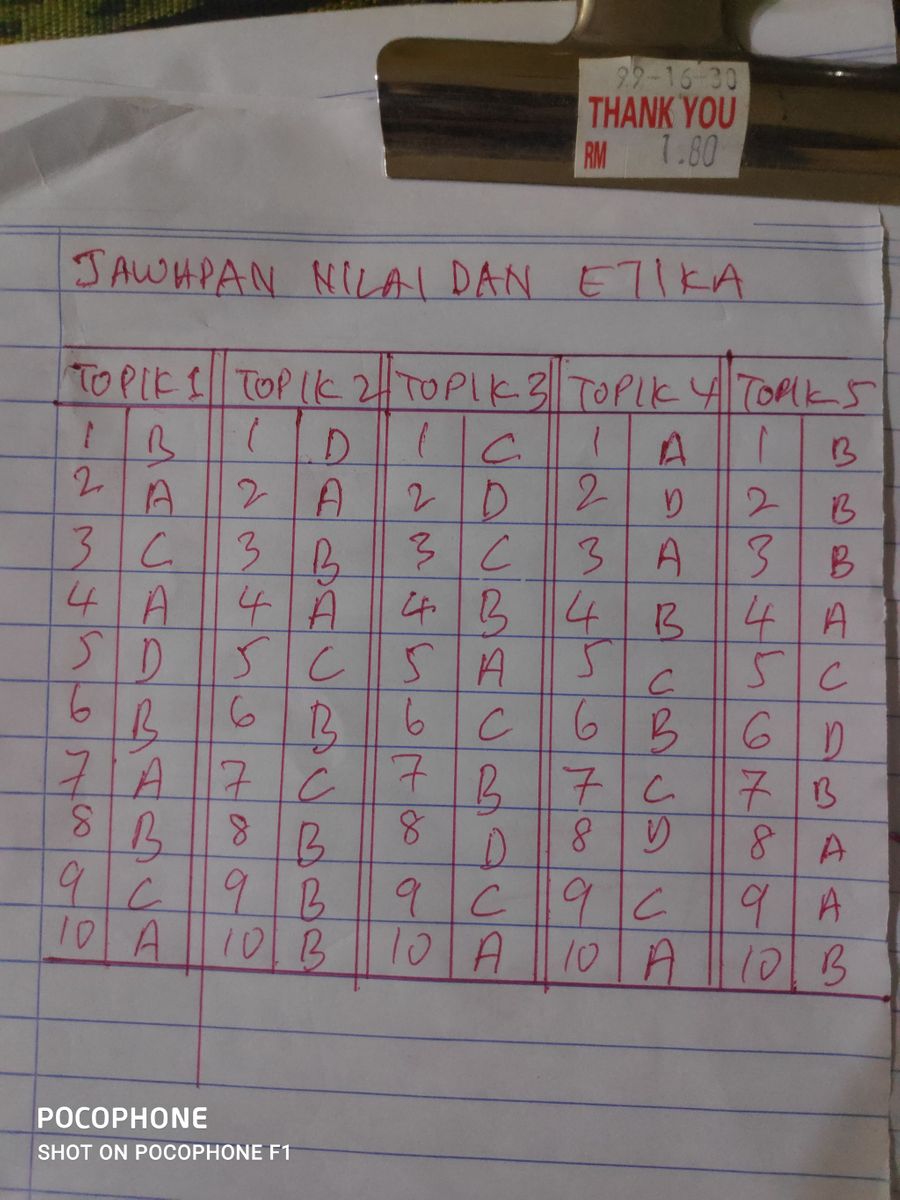 99-16-30
THANK YOU
RM 1.80
JAWAPAN NILAI DAN ETIKA
TOPIK 1 TOPIK 2 TOPIK 3 TOPIK 4 TOPIK 5
1 B 1 D 1 C 1 A 1 B
2 A 2 A 2 D 2 D 2 B
3 C 3 B 3 C 3 A 3 B
4 A 4 A 4 B 4 B 4 A
5 D 5 C 5 A 5 C 5 C
6 B 6 B 6 C 6 B 6 D
7 A 7 C 7 B 7 C 7 B
8 B 8 B 8 D 8 D 8 A
9 C 9 B 9 C 9 C 9 A
10 A 10 B 10 A 10 A 10 B
POCOPHONE
SHOT ON POCOPHONE F1